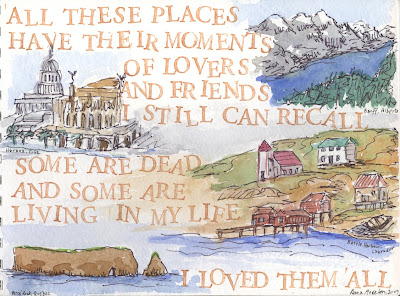 ALL THESE PLACES
HAVE THEIR MOMENTS
OF LOVERS
AND FRIENDS
I STILL CAN RECALL
Banff, Alberta
Havana, Cuba
SOME ARE DEAD
AND SOME ARE
LIVING IN MY LIFE
Battle Harbour
Labrador
I LOVED THEM ALL